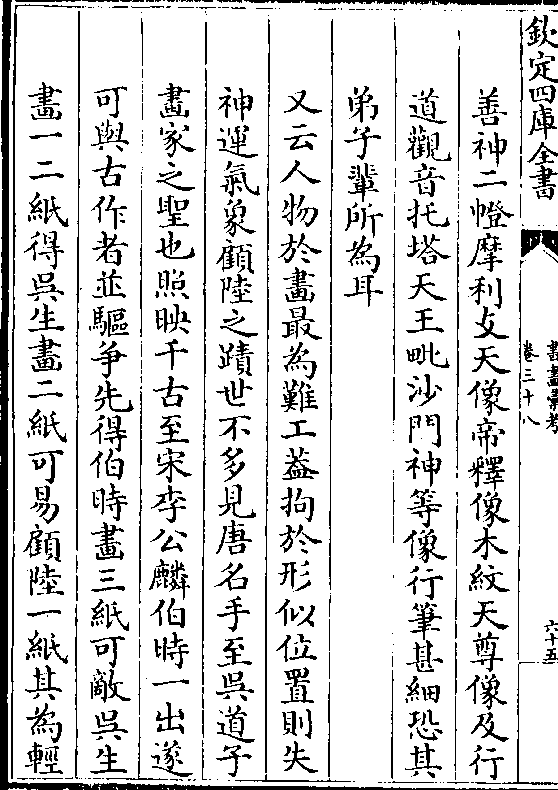 欽定四庫全書
書畫彙考
卷三十八
六十五
善神二幢摩利攴天像帝釋像木紋天尊像及行
道觀音托塔天王毗沙門神等像行筆甚細恐其
弟子輩所為耳
又云人物於畫最為難工葢拘於形似位置則失
神運氣象顧陸之蹟世不多見唐名手至吳道子
畫家之聖也照映千古至宋李公麟伯時一出遂
可與古作者並驅爭先得伯時畫三紙可敵吳生
畫一二紙得吳生畫二紙可易顧陸一紙其為輕